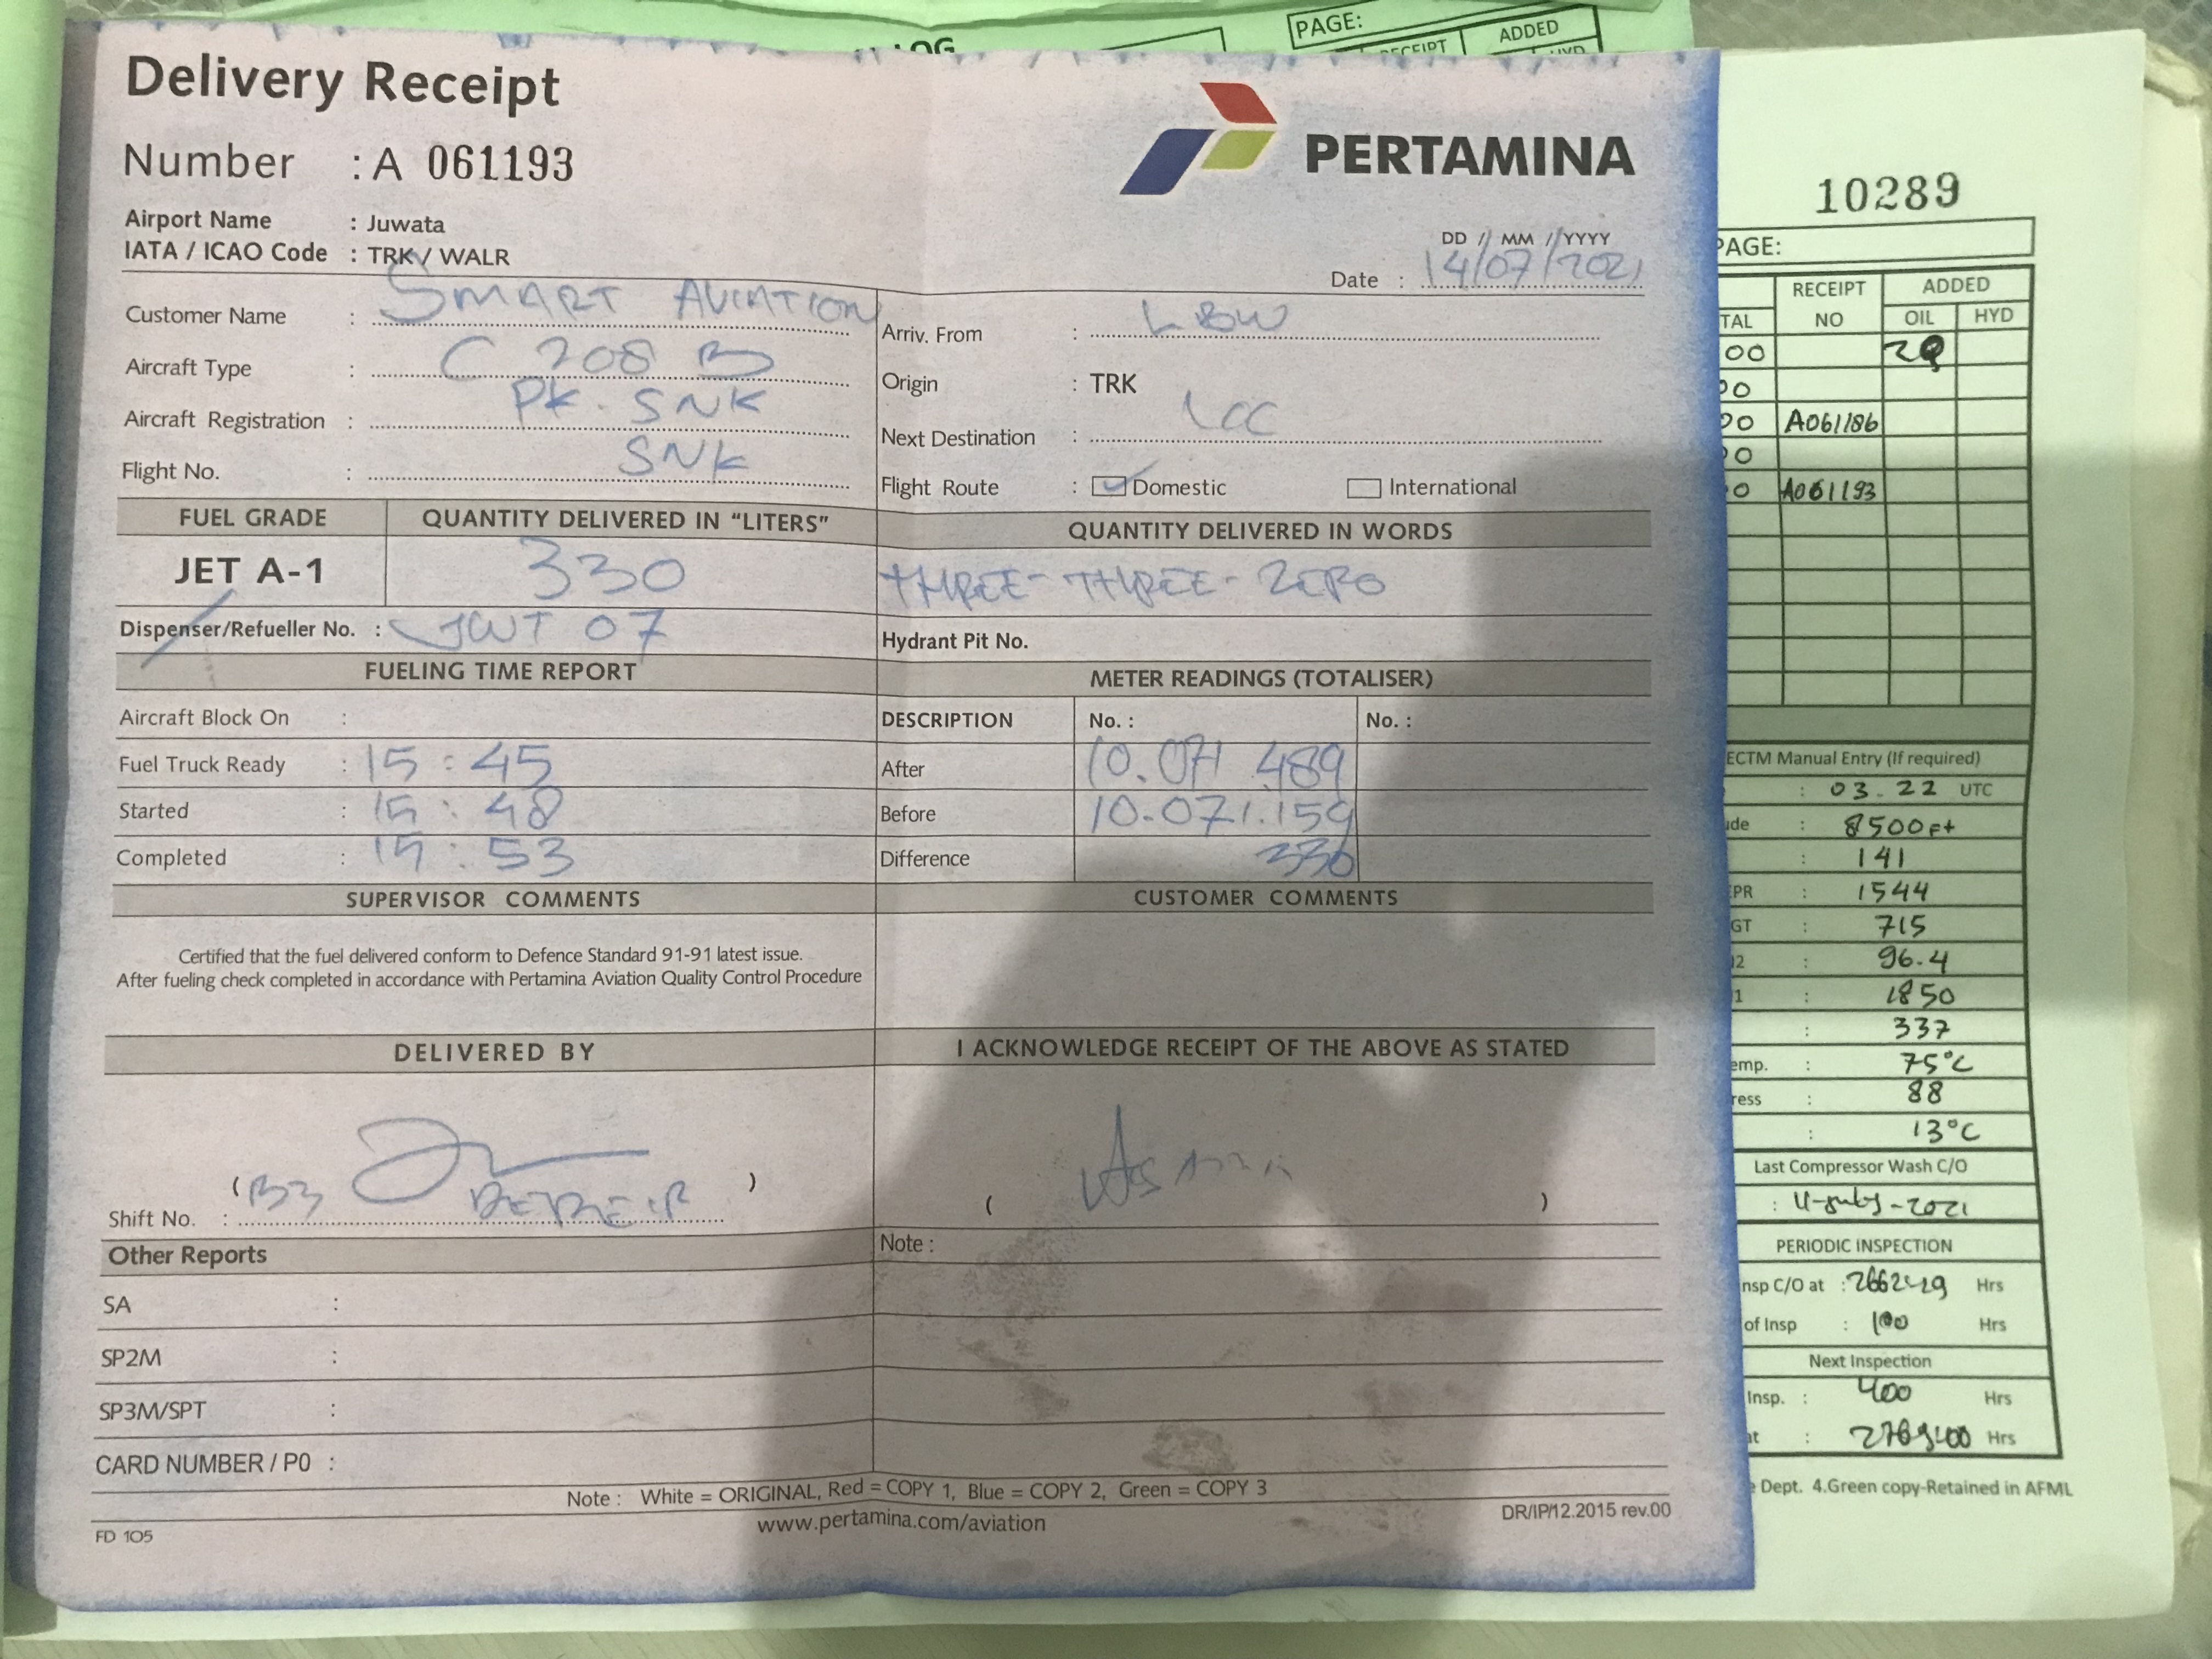 PAGE:
ADDED
RECEIPT
Delivery Receipt
Number : A 061193
PERTAMINA
Airport Name : Juwata
IATA / ICAO Code : TRK / WALR
DD / MM / YYYY
Date : 14/07/2021
Customer Name : SMART AVIATION
Arriv. From : LBW
Aircraft Type : C 208 B
Origin : TRK
Aircraft Registration : PK-SNK
Next Destination : LOC
Flight No. : SNK
Flight Route : Domestic International
FUEL GRADE QUANTITY DELIVERED IN "LITERS" QUANTITY DELIVERED IN WORDS
JET A-1 330 THREE-THREE-ZERO
Dispenser/Refueller No. : JWT 07
Hydrant Pit No.
FUELING TIME REPORT METER READINGS (TOTALISER)
Aircraft Block On :
DESCRIPTION No. : No. :
Fuel Truck Ready : 15:45
After 10.071.489
Started : 15:48
Before 10.071.159
Completed : 15:53
Difference 330
SUPERVISOR COMMENTS CUSTOMER COMMENTS
Certified that the fuel delivered conform to Defence Standard 91-91 latest issue.
After fueling check completed in accordance with Pertamina Aviation Quality Control Procedure
DELIVERED BY I ACKNOWLEDGE RECEIPT OF THE ABOVE AS STATED
( B3 ) ( )
Shift No. :
Other Reports
Note :
SA :
SP2M :
SP3M/SPT :
CARD NUMBER / P0 :
Note : White = ORIGINAL, Red = COPY 1, Blue = COPY 2, Green = COPY 3
www.pertamina.com/aviation
FD 105
DR/IP/12.2015 rev.00
10289
PAGE:
RECEIPT NO
ADDED
OIL HYD
A061186
A061193
ECTM Manual Entry (If required)
: 03.22 UTC
: 8500ft
: 141
: 1544
: 715
: 96.4
: 1850
: 337
: 75°C
: 88
: 13°C
Last Compressor Wash C/O
PERIODIC INSPECTION
C/O at : Hrs
of Insp : 100 Hrs
Next Inspection
Insp. : 400 Hrs
: Hrs
Dept. 4.Green copy-Retained in AFML